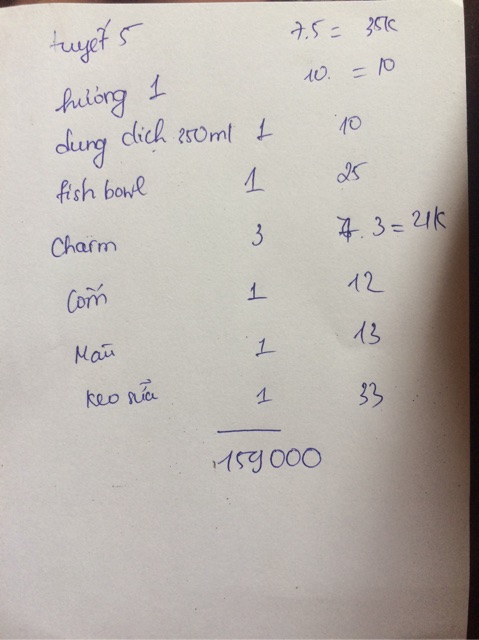 tuyết 5 7.5 = 35K
hương 1 10. = 10
dung dịch 250ml 1 10
fish bowl 1 25
Charm 3 7. 3 = 21K
Cốm 1 12
Màu 1 13
keo sữa 1 33
159000